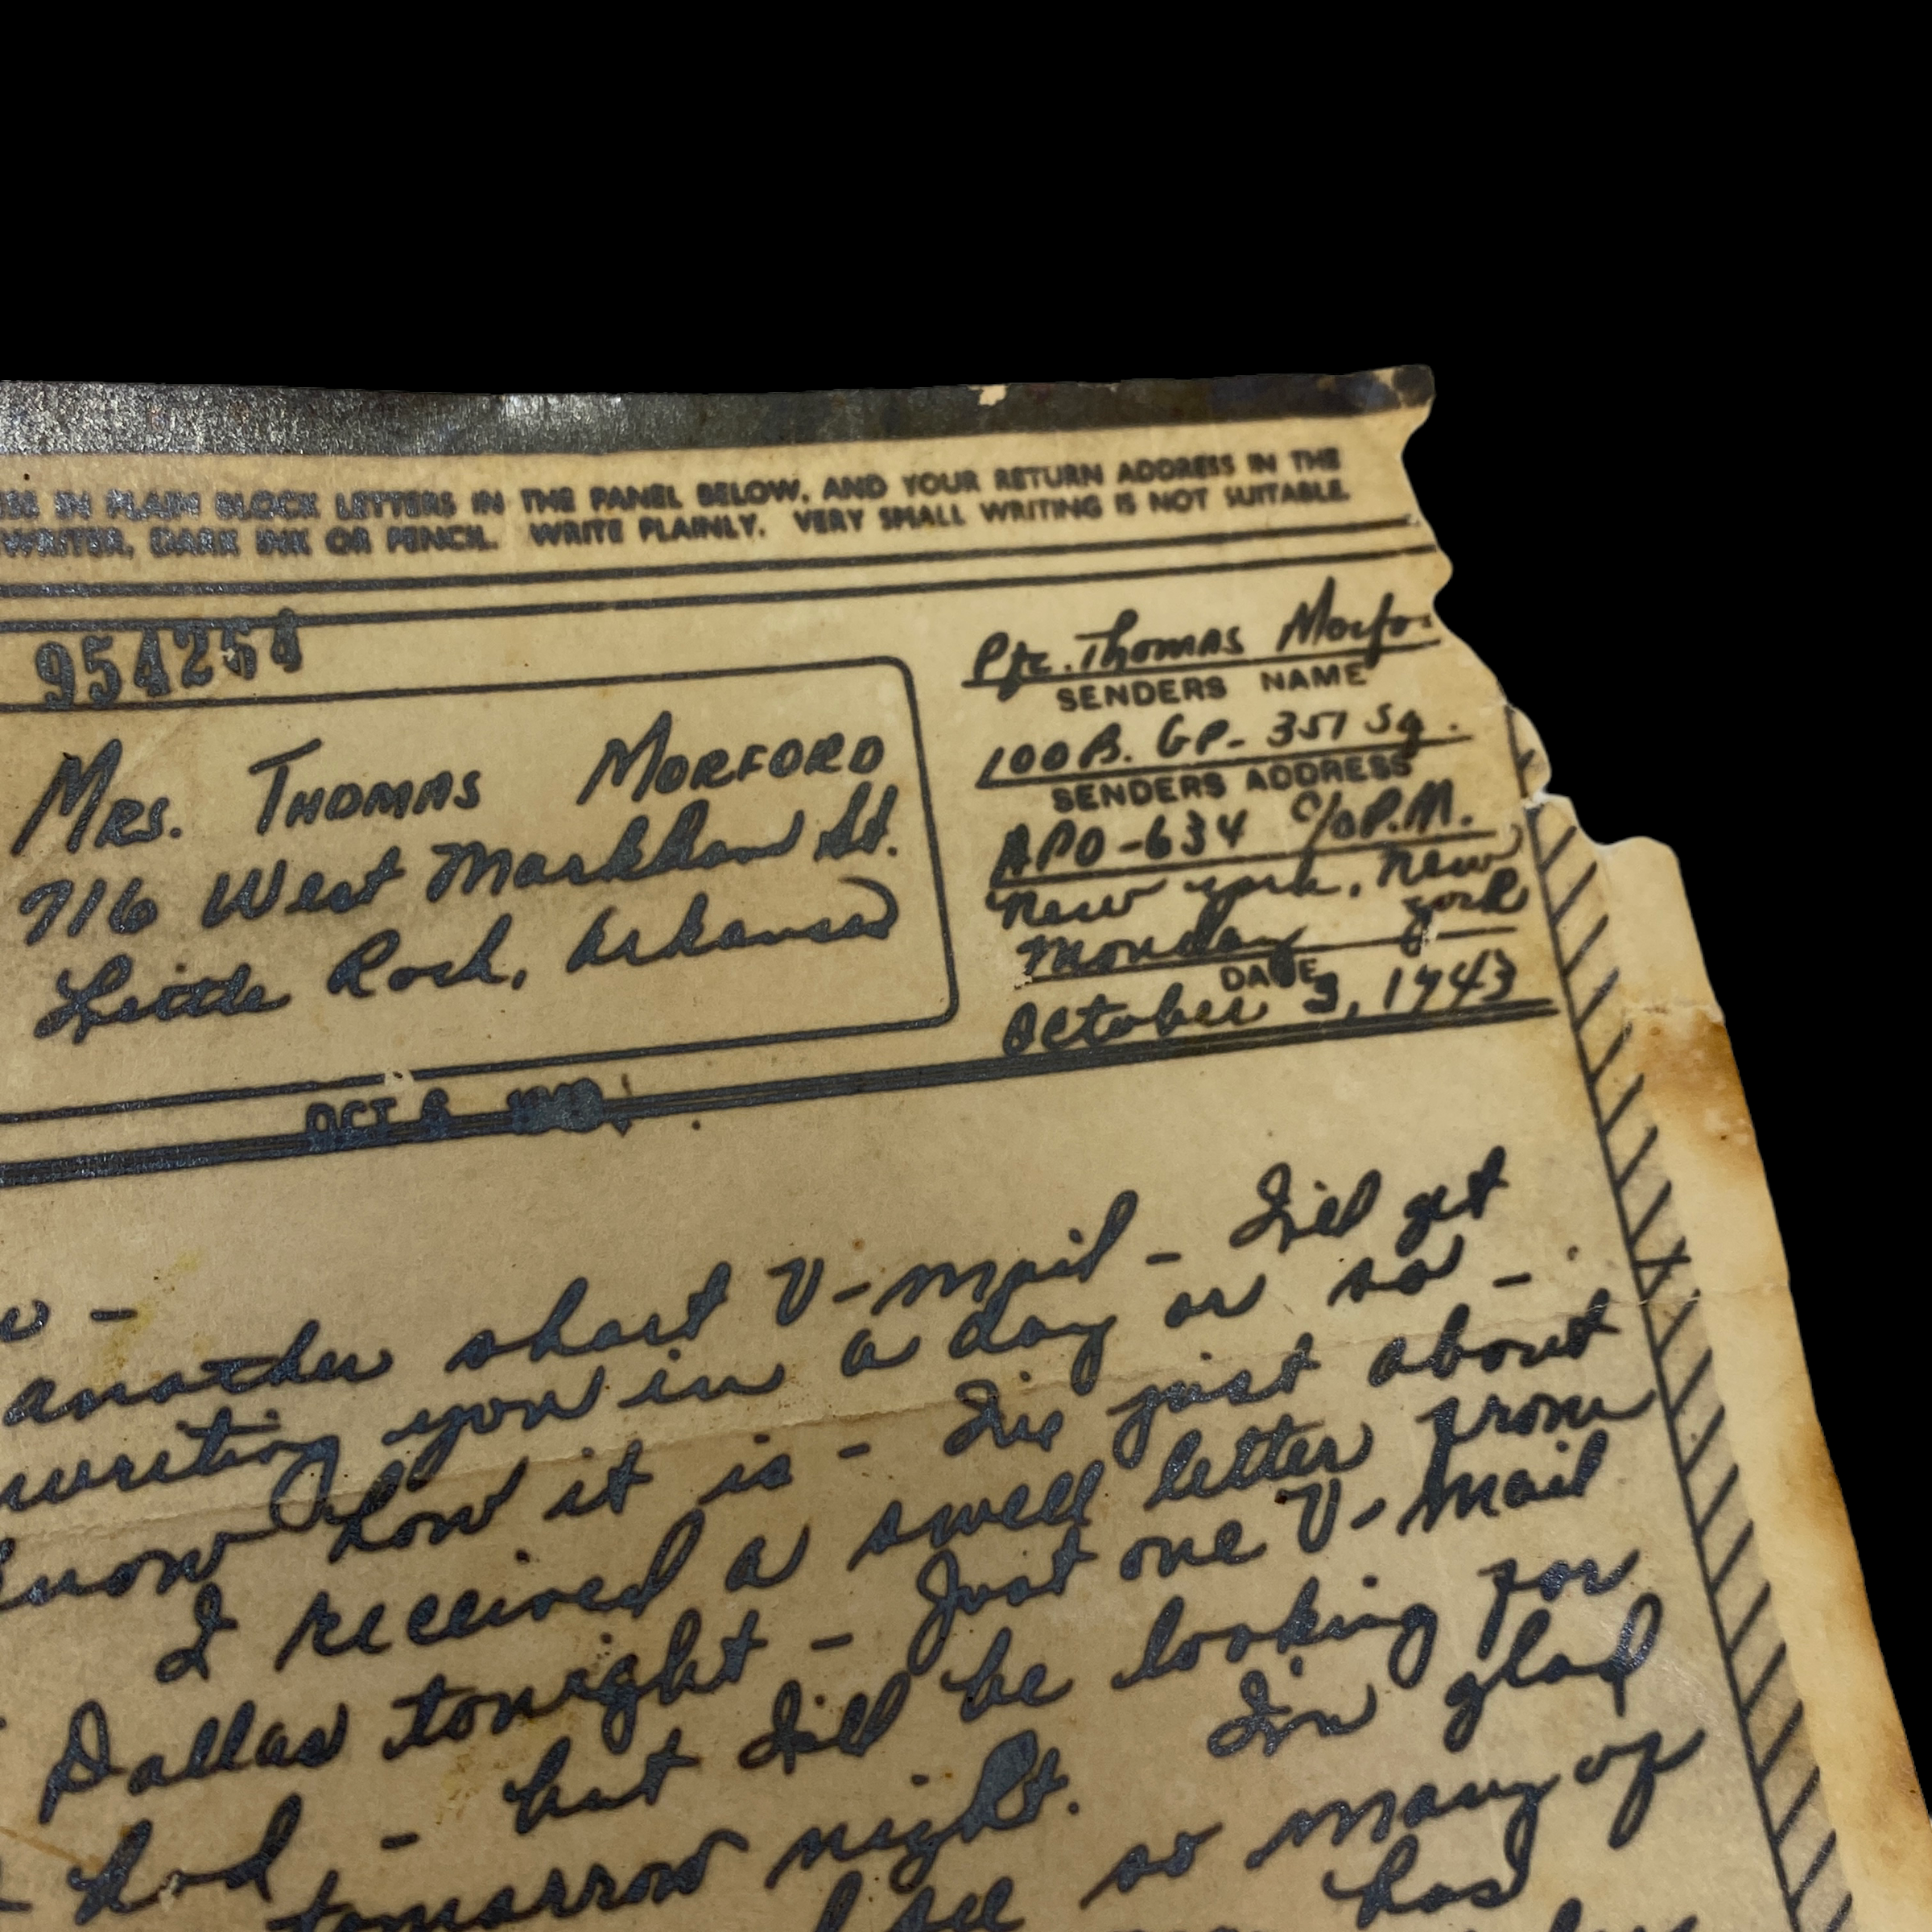 IN PLAIN BLOCK LETTERS IN THE PANEL BELOW, AND YOUR RETURN ADDRESS IN THE
WRITER, DARK INK OR PENCIL. WRITE PLAINLY. VERY SMALL WRITING IS NOT SUITABLE.
954254
MRS. THOMAS MORFORD
716 West Markham St.
Little Rock, Arkansas
Pfc. Thomas Morfo
SENDERS NAME
100 B. GP- 351 Sq.
SENDERS ADDRESS
APO-634 c/o P.M.
New York, New
York
Monday
DATE
October 3, 1943
OCT 6 1943
another short V-mail - I'll get
writing you in a day or so -
know how it is - I've just about
I received a swell letter from
Dallas tonight - Just one V-Mail
had - but I'll be looking for
tomorrow night. I'm glad
see so many of
has